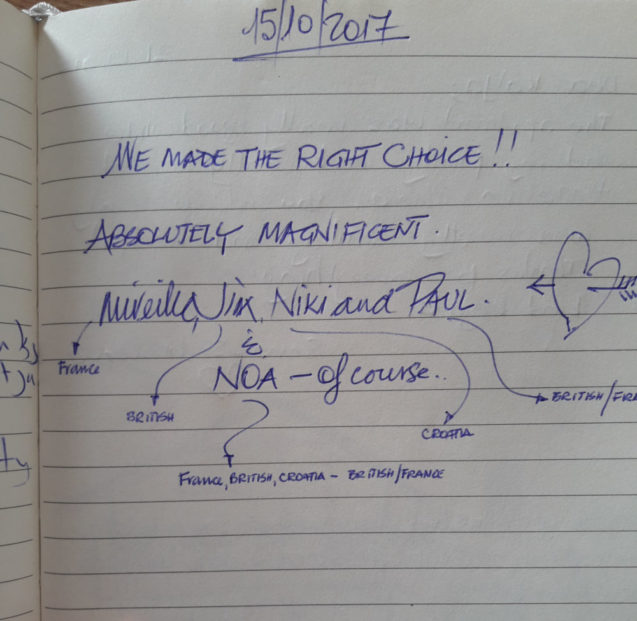 15/10/2017
WE MADE THE RIGHT CHOICE!!
ABSOLUTELY MAGNIFICENT.
Mireille, Jim, Niki and PAUL.
&
France
NOA - Of course..
BRITISH
BRITISH/FRA
CROATIA
France, BRITISH, CROATIA - BRITISH/FRANCE